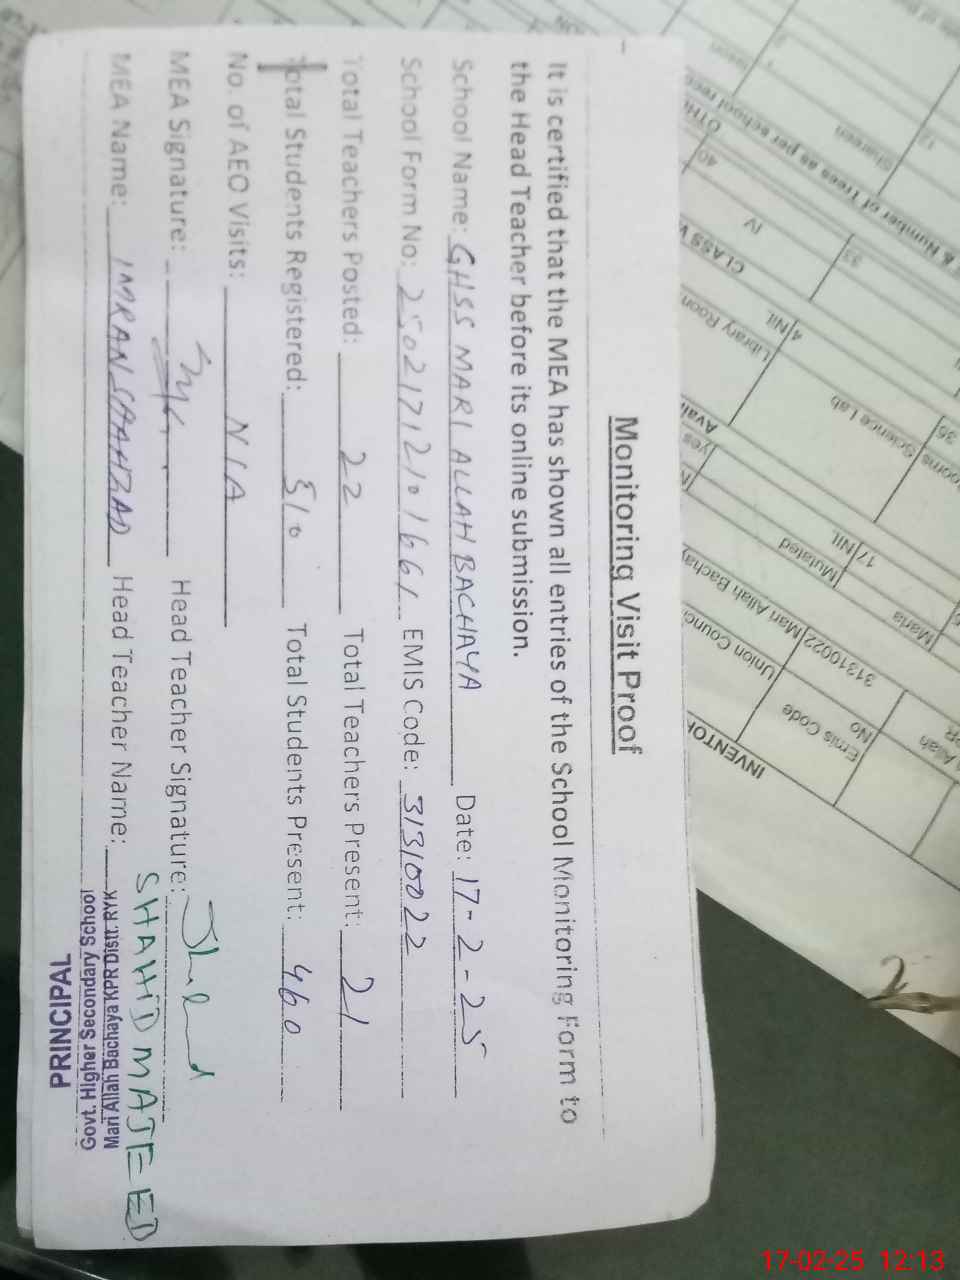 Monitoring Visit Proof
It is certified that the MEA has shown all entries of the School Monitoring Form to
the Head Teacher before its online submission.
School Name: GHSS MARI ALLAH BACHAYA Date: 17-2-25
School Form No: 25021712101661 EMIS Code: 31310022
Total Teachers Posted: 22 Total Teachers Present: 21
Total Students Registered: 510 Total Students Present: 460
No. of AEO Visits: N/A
MEA Signature: Head Teacher Signature:
MEA Name: IMRAN SHAHZAD Head Teacher Name: SHAHID MAJEED
PRINCIPAL
Govt. Higher Secondary School
Mari Allah Bachaya KPR Distt. RYK
INVENTOR
Emis Code
No
Union Counci
31310022 Mari Allah Bachay
Marla
Mutated
17 NIL
yes
Avail
ooms Science Lab
Library Room
35
4 NIL
CLASS
IV
33
40
OTH
& Number of Trees as per school rec
Shareen
12
17-02-25 12:13